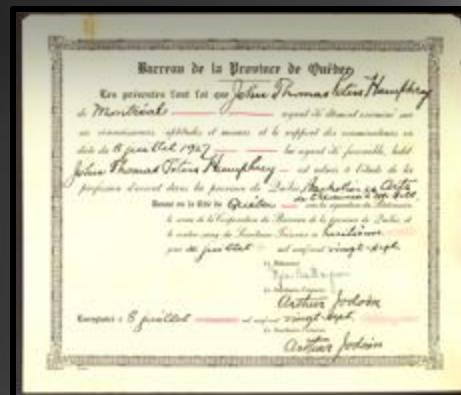 Barreau de la Province de Québec
Les présentes font foi que John Thomas Peters Humphrey
de Montréal ayant été dûment examiné sur
ses connaissances, aptitudes et moeurs et le rapport des examinateurs en
date du 8 juillet 1927 lui ayant été favorable, ledit
John Thomas Peters Humphrey est admis à l'étude de la
profession d'avocat dans la province de Québec Bachelier ès Arts
Donné en la Cité de Québec sous la signature du Bâtonnier
le sceau de la Corporation du Barreau de la province de Québec, et
le contre-seing du Secrétaire-Trésorier ce huitième
jour de juillet mil neuf cent vingt-sept
Le Bâtonnier
Le Secrétaire-Trésorier
Arthur Jodoin
Enregistré ce 8 juillet mil neuf cent vingt-sept
Le Secrétaire-Trésorier
Arthur Jodoin